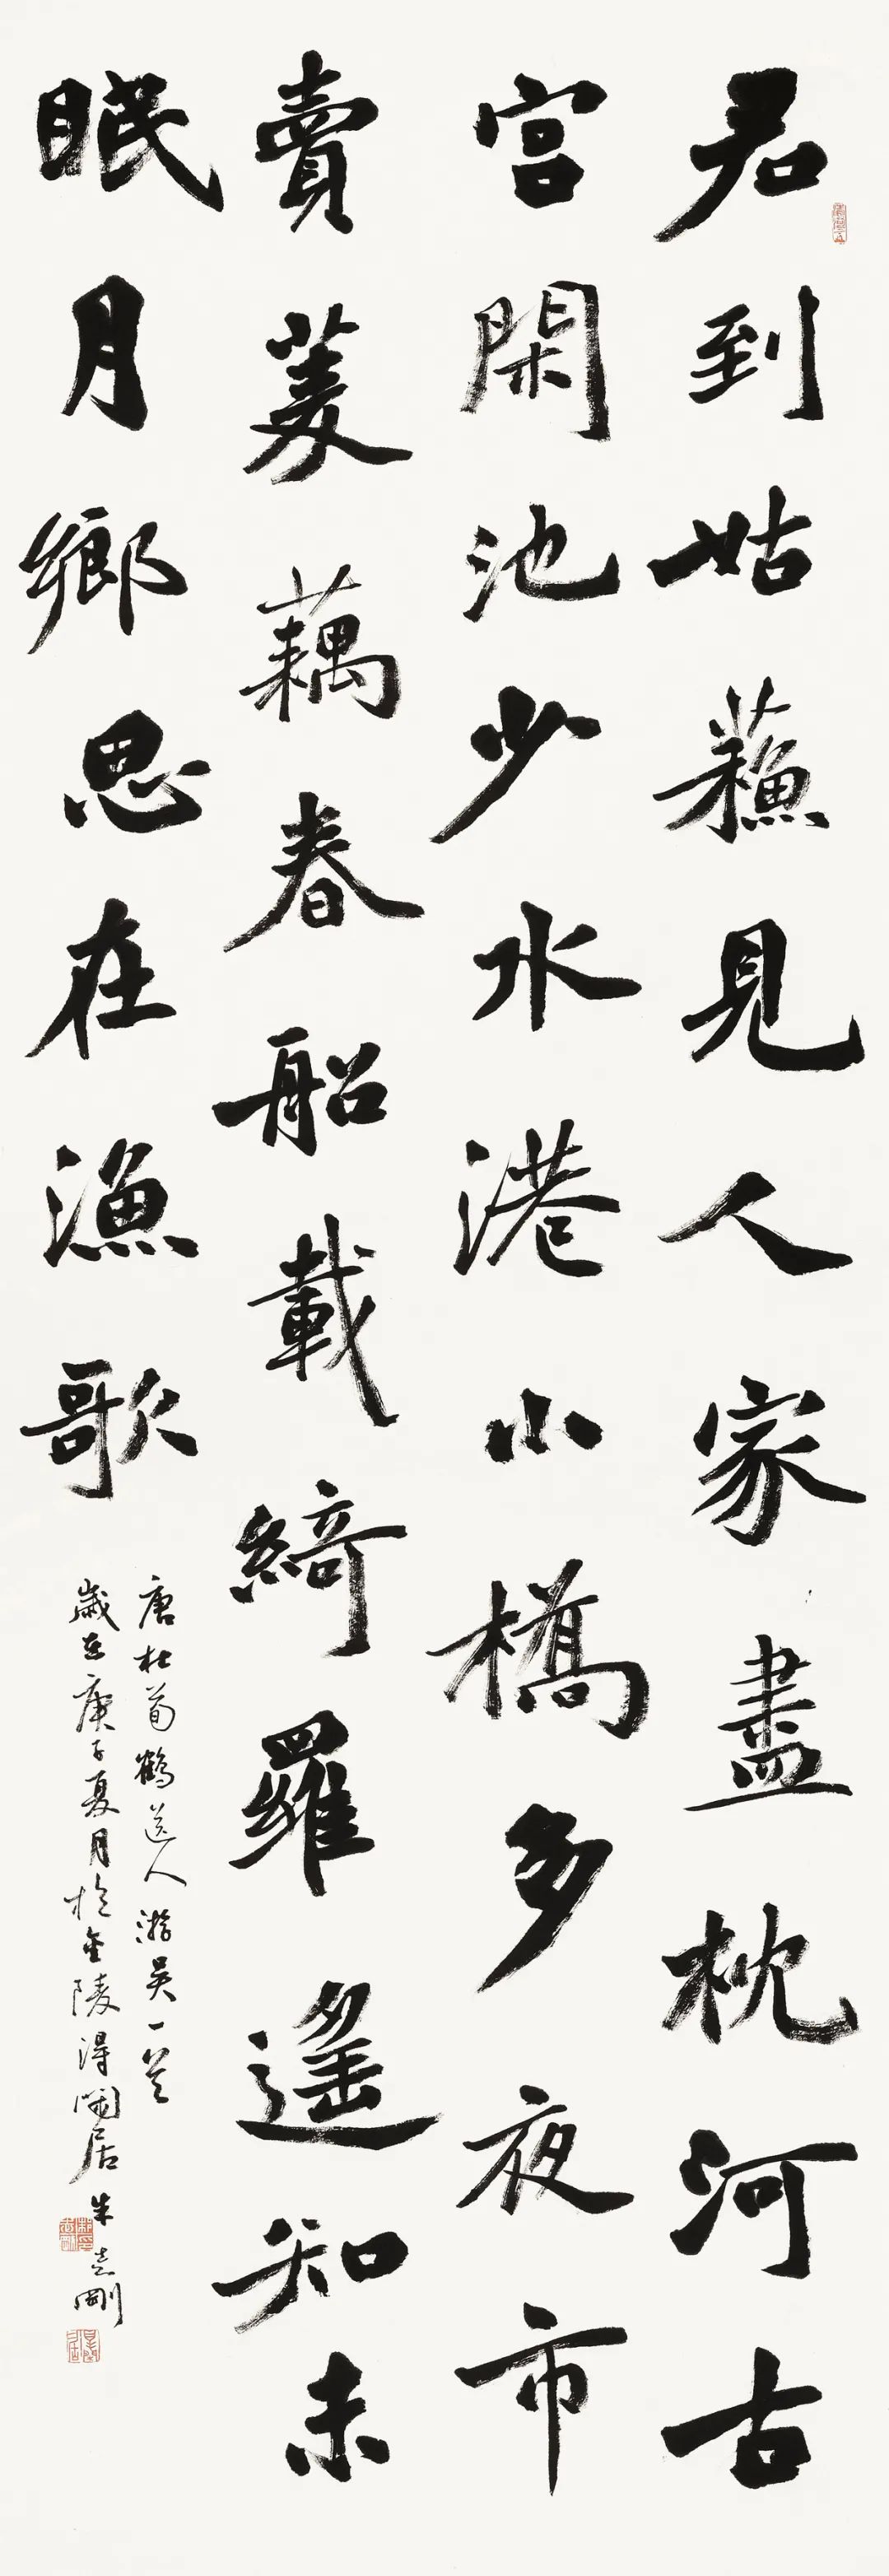 君到姑蘇見人家盡枕河古
宮閑池少水港小橋多夜市
賣菱藕春船載綺羅遙知未
眠月鄉思在漁歌
唐杜荀鶴送人游吳一首
歲在庚子夏月於金陵得閑居朱志剛